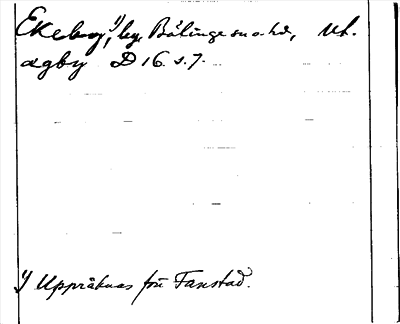 Ekeby,¹⁾ by, Bälinge sn o. hd, Upl.
ægby D 16 s. 7.
1) Uppräknas för Fanstad.